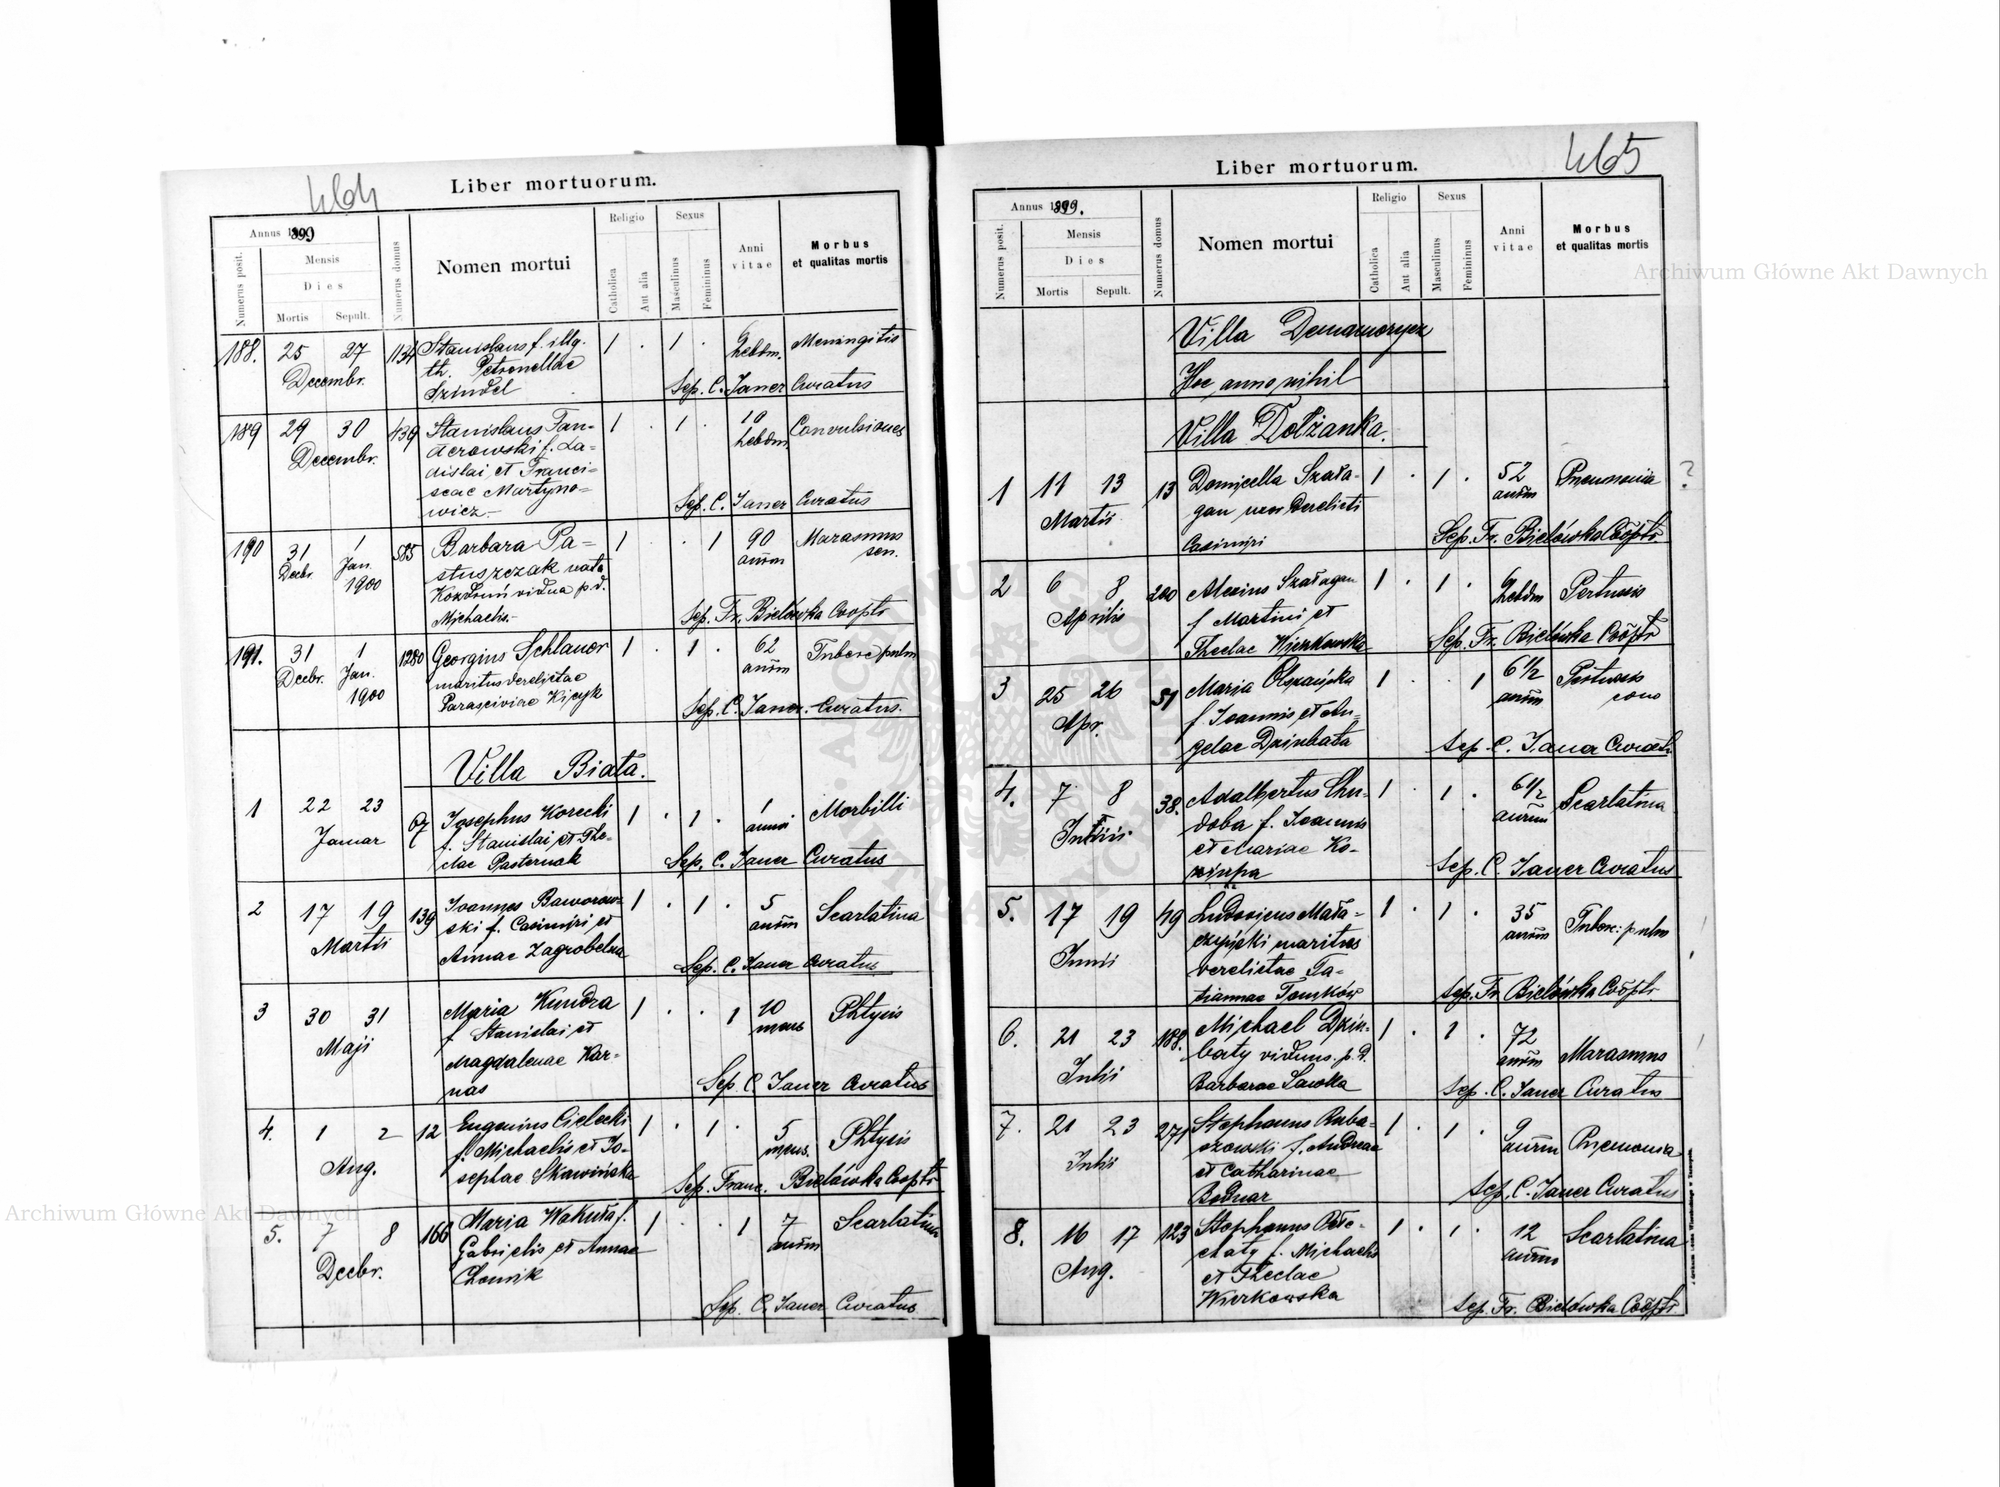 464
Liber mortuorum.
Annus 1899
Numerus posit.
Mensis
Dies
Mortis Sepult.
Numerus domus
Nomen mortui
Religio
Catholica
Aut alia
Sexus
Masculinus
Femininus
Anni vitae
Morbus et qualitas mortis
188. 25 27 Decembr. 1134
Stanislaus f. illg.
th. Petronellae
1 . 1 .
hebdm. Meningitis
Sep. C. Janer Curatus
189 29 30 Decembr. 439
Stanislaus
f. La-
dislai et Franci-
scae Martyno-
wicz.-
1 . 1 .
19 hebdm Convulsiones
Sep. C. Janer Curatus
190 31 Decbr. 1 Jan. 1900 585
Barbara Pa-
stuszczak nata
vidua p.d.
Michaelis.-
1 . . 1
90 annm Marasmus sen.
Sep. Fr. Bielówka Coopts
191. 31 Decbr. 1 Jan. 1900 1280
Georgius
maritus derelictae
Parasciviae
1 . 1 .
62 annm Tuberc pulm
Sep. C. Janer. Curatus.
Villa Biała.
1 22 23 Januar 67
Josephus Korecki
f. Stanislai et The-
clae Pasternak
1 . 1 .
1 anni Morbilli
Sep. C. Janer Curatus
2 17 19 Martii 139
Joannes Baworow-
ski f. Casimiri et
Annae Zagrobelna
1 . 1 .
5 annm Scarlatina
Sep. C. Janer Curatus
3 30 31 Maji
Maria Kundra
f. Stanislai et
Magdalenae Kar-
nas
1 . . 1
10 mens Phtysis
Sep. C. Janer Curatus
4. 1 2 Aug. 12
Eugenius Cielecki
f. Michaelis et Jo-
sephae Skawińska
1 . 1 .
5 mens. Phtysis
Sep. Franc. Bielówka Coopts
5. 7 8 Decbr. 166
Maria Wakuła f.
Gabrielis et Annae
Chomik
1 . . 1
7 annm Scarlatina
Sep. C. Janer Curatus
465
Liber mortuorum.
Annus 1899.
Numerus posit.
Mensis
Dies
Mortis Sepult.
Numerus domus
Nomen mortui
Religio
Catholica
Aut alia
Sexus
Masculinus
Femininus
Anni vitae
Morbus et qualitas mortis
Villa Domamorycz
Hoc anno nihil
Villa Dołżanka.
1 11 13 Martii 13
Domicella Szała-
gan uxor derelicti
Casimiri
1 . 1 .
52 annm Pneumonia ?
Sep. Fr. Bielówka Coopts.
2 6 8 Aprilis 200
Alexius Szałagan
f Martini et
Theclae Wierkowska
1 . 1 .
hebdm Pertussis
Sep. Fr. Bielówka Coopts
3 25 26 Apr. 51
Maria Olszańska
f. Joannis et An-
gelae Dziubata
1 . . 1
6 1/2 annm
Sep. C. Janer Curatus
4. 7 8 38.
Adalbertus Chu-
doba f. Joannis
et Mariae Ko-
1 . 1 .
6 1/2 annm Scarlatina
Sep. C. Janer Curatus
5. 17 19 Junii 49
Ludovicus Mała-
maritus
derelictae Ta-
tiannae Tomków
1 . 1 .
35 annm Tuberc: pulm
Sep. Fr. Bielówka Coopts
6. 21 23 Julii 188.
Michael Dziu-
baty viduus. p.d.
Barbarae Sawka
1 . 1 .
72 annm Marasmus
Sep. C. Janer Curatus
7. 21 23 Julii 271
Stephanus Ruba-
szowski f. Andreae
et Catharinae
Bodnar
1 . 1 .
9 annm Pneumonia
Sep. C. Janer Curatus
8. 16 17 Aug. 123
Stephanus Pełe-
chaty f. Michaelis
et Theclae
Wierkowska
1 . 1 .
12 annm Scarlatina
Sep. Fr. Bielówka Coopts
Archiwum Główne Akt Dawnych
Archiwum Główne Akt Dawnych